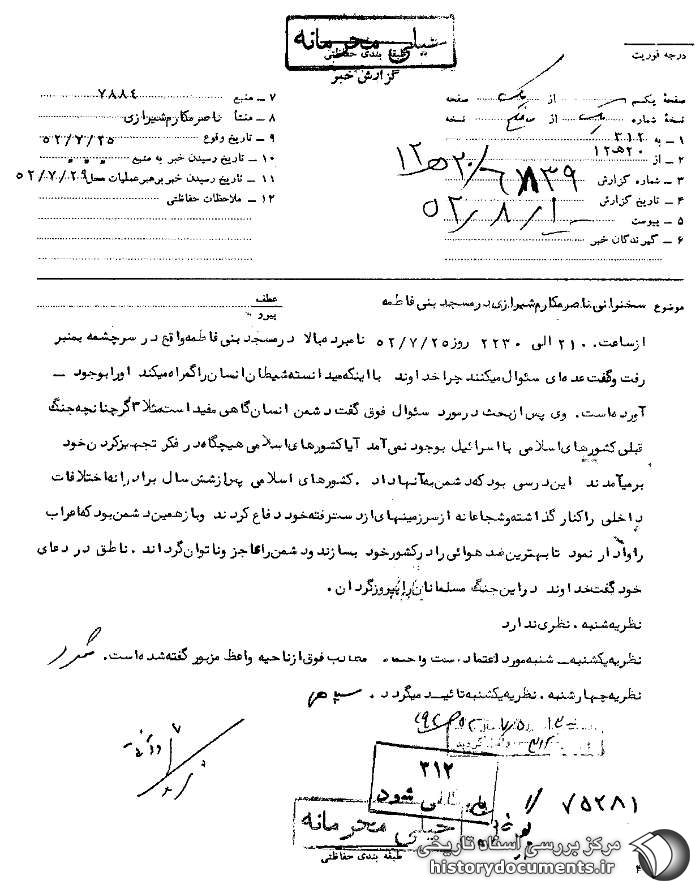 خیلی محرمانه
طبقه بندی حفاظتی
گزارش خبر
درجه فوریت
صفحهٔ یکم از یک صفحه
نسخهٔ شماره یک از نسخه
۱ ـ به ۳۱۲
۲ ـ از ۲۰ ه ۱۲
۳ ـ شماره گزارش ۲۰ ه ۱۲ / ۶۸۳۹
۴ ـ تاریخ گزارش ۵۲/۸/۱
۵ ـ پیوست
۶ ـ گیرندگان خبر
۷ ـ منبع ۷۸۸۴
۸ ـ منشأ ناصر مکارم شیرازی
۹ ـ تاریخ وقوع ۵۲/۷/۲۵
۱۰ ـ تاریخ رسیدن خبر به منبع
۱۱ ـ تاریخ رسیدن خبر برهبر عملیات محل ۵۲/۷/۲۹
۱۲ ـ ملاحظات حفاظتی
موضوع سخنرانی ناصر مکارم شیرازی در مسجد بنی فاطمه
عطف
پیرو
از ساعت ۲۱۰۰ الی ۲۲۳۰ روز ۵۲/۷/۲۵ نامبرده بالا در مسجد بنی فاطمه واقع در سرچشمه بمنبر
رفت و گفت عده ای سئوال میکنند چرا خداوند با اینکه میدانسته شیطان انسان را گمراه میکند او را بوجود ـ
آورده است. وی پس از بحث در مورد سئوال فوق گفت دشمن انسان گاهی مفید است مثلا اگر چنانچه جنگ
قبلی کشورهای اسلامی با اسرائیل بوجود نمی آمد آیا کشورهای اسلامی هیچگاه در فکر تجهیز کردن خود
بر میآمدند این درسی بود که دشمن به آنها داد. کشورهای اسلامی پس از شش سال برادرانه اختلافات
داخلی را کنار گذاشته و شجاعانه از سرزمینهای از دست رفته خود دفاع کردند و باز همین دشمن بود که اعراب
را وادار نمود تا بهترین ضد هوائی را در کشور خود بسازند و دشمن را عاجز و ناتوان گرداند. ناطق در دعای
خود گفت خداوند در این جنگ مسلمانان را پیروز گردان.
نظریه شنبه. نظری ندارد
نظریه یکشنبه ـ شنبه مورد اعتماد است و مطالب فوق از ناحیه واعظ مزبور گفته شده است.
نظریه چهارشنبه. نظریه یکشنبه تائید میگردد. سپهر
۳۱۲
شود
۷۵۲۸۱
خیلی محرمانه
طبقه بندی حفاظتی
مرکز بررسی اسناد تاریخی
historydocuments.ir